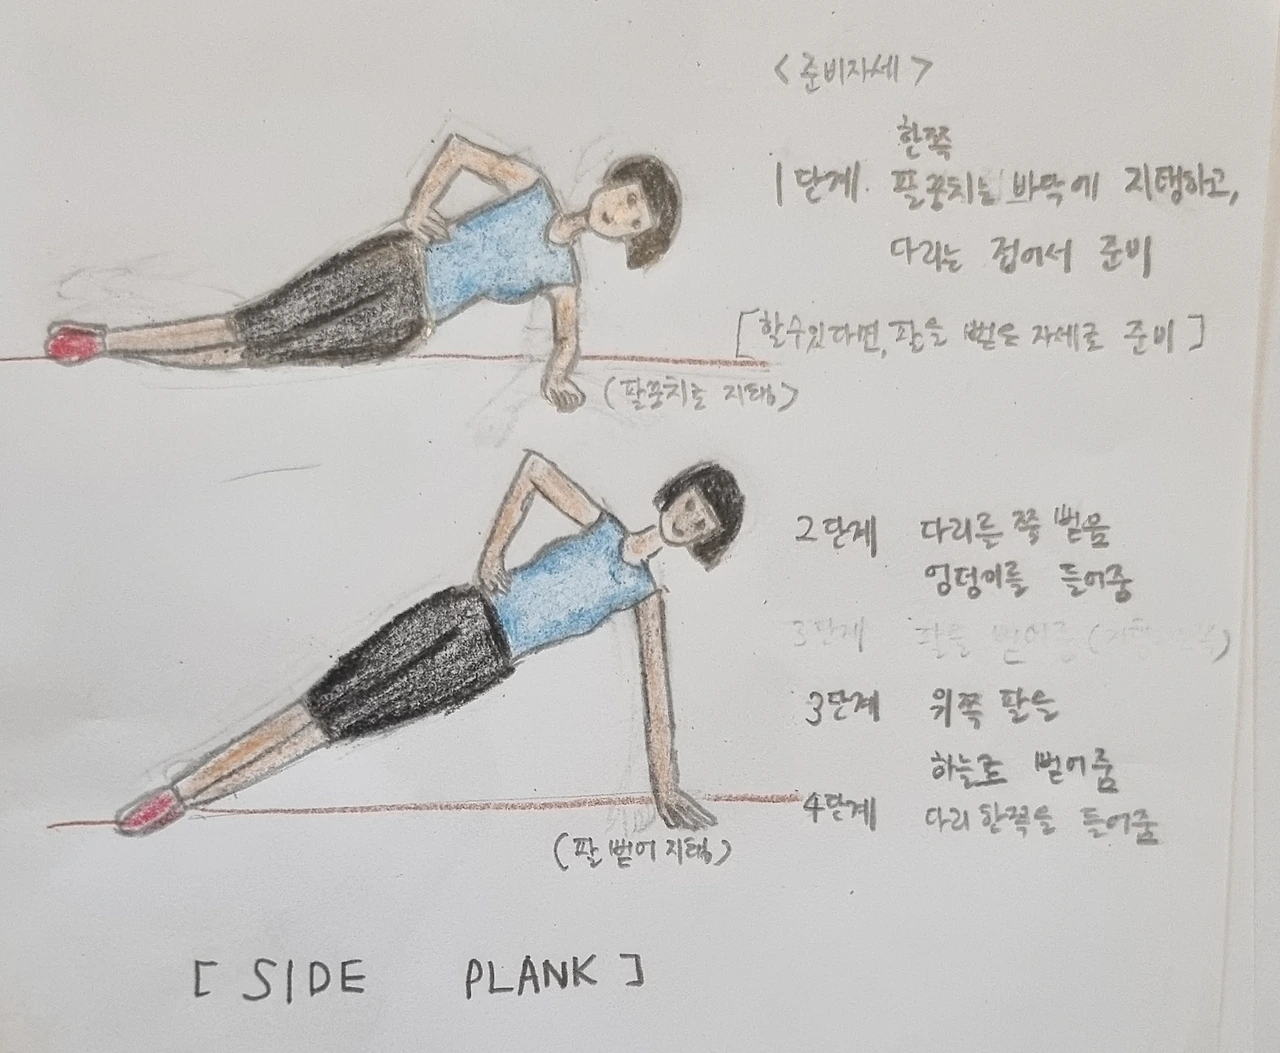 <준비자세>
한쪽
1단계. 팔꿈치는 바닥에 지탱하고,
다리는 접어서 준비
[할수있다면, 팔을 뻗은 자세로 준비]
(팔꿈치로 지탱)
2단계 다리를 쭉 뻗음
엉덩이를 들어줌
3단계 팔을 뻗어줌
3단계 위쪽 팔을
하늘로 뻗어줌
4단계 다리 한쪽을 들어줌
(팔 뻗어 지탱)
[SIDE PLANK]